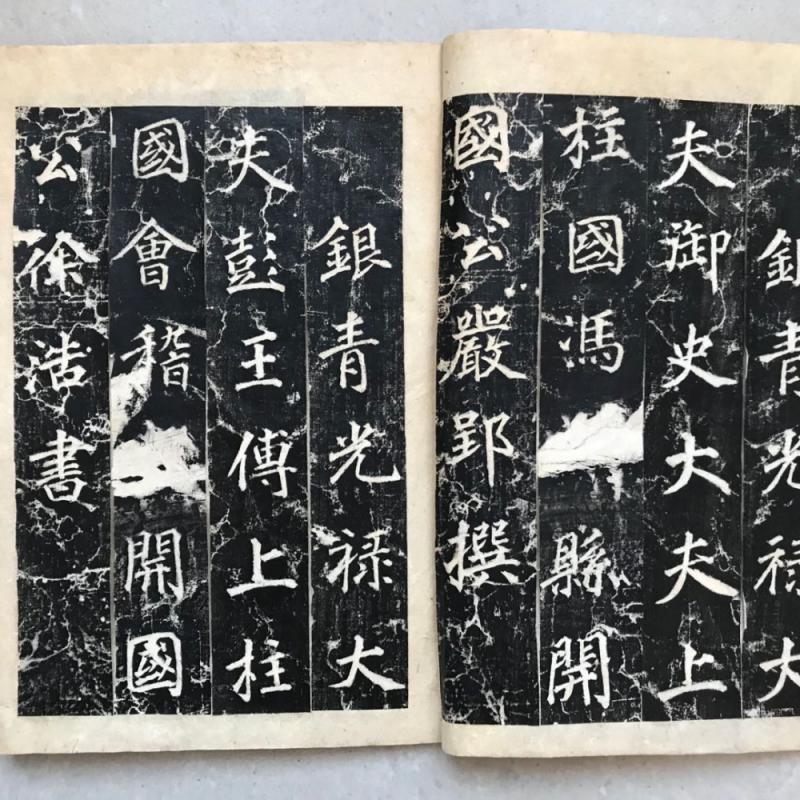 銀青光禄大
夫御史大夫上
柱國馮縣開
國公嚴郢撰
銀青光禄大
夫彭王傅上柱
國會稽開國
公徐浩書